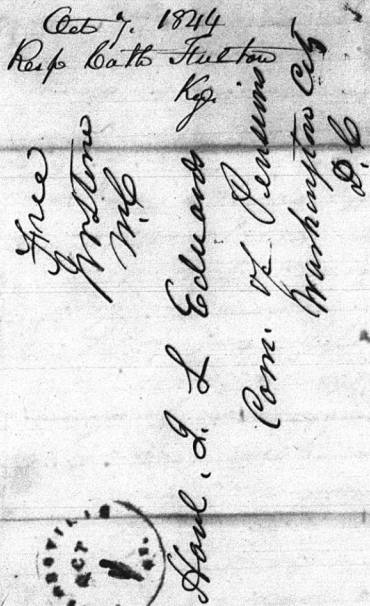 Oct 7. 1844
Resp Cath Fulton
Ky.
Free
M.C
Honl. J. L Edwards
Com. of Pensions
Washington City
D. C
OCT